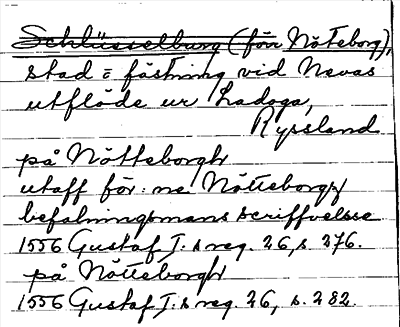 Schlüsselburg (förr Nöteborg),
stad = fästning vid Nevas
utflöde ur Ladoga,
Ryssland
på Nötteborgh
utaff för: ne Nötteborgz
befalningsmans scriffvelsse
1556 Gustaf I:s reg. 26, s. 276.
på Nötteborgh
1556 Gustaf I:s reg. 26, s. 282.